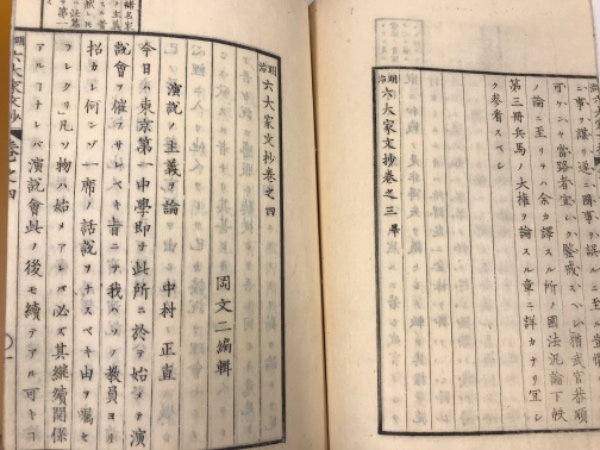 ノ論ニ至リテハ余カ譯スル所ノ國法汎論下帙
第三冊兵馬ノ大權ヲ論スル章ニ詳カナリ宜シ
ク參看スベシ
明治六大家文抄卷之三畢
明治六大家文抄卷之四
岡文二編輯
演説ノ主義ヲ論ズ
中村正直
今日ハ東京第一中學即チ此所ニ於テ始メテ演
説會ヲ催フサルベキ旨ニテ我ハソノ教員ヨリ
招カレ何ンゾ一席ノ話説ヲナスベキ由ヲ囑セ
ラレタリ凡ソ物ハ始メアレバ必ズ其繼續關係
アルコナレバ演説會此ノ後モ續テアル可キコ
六大家文抄 卷之四